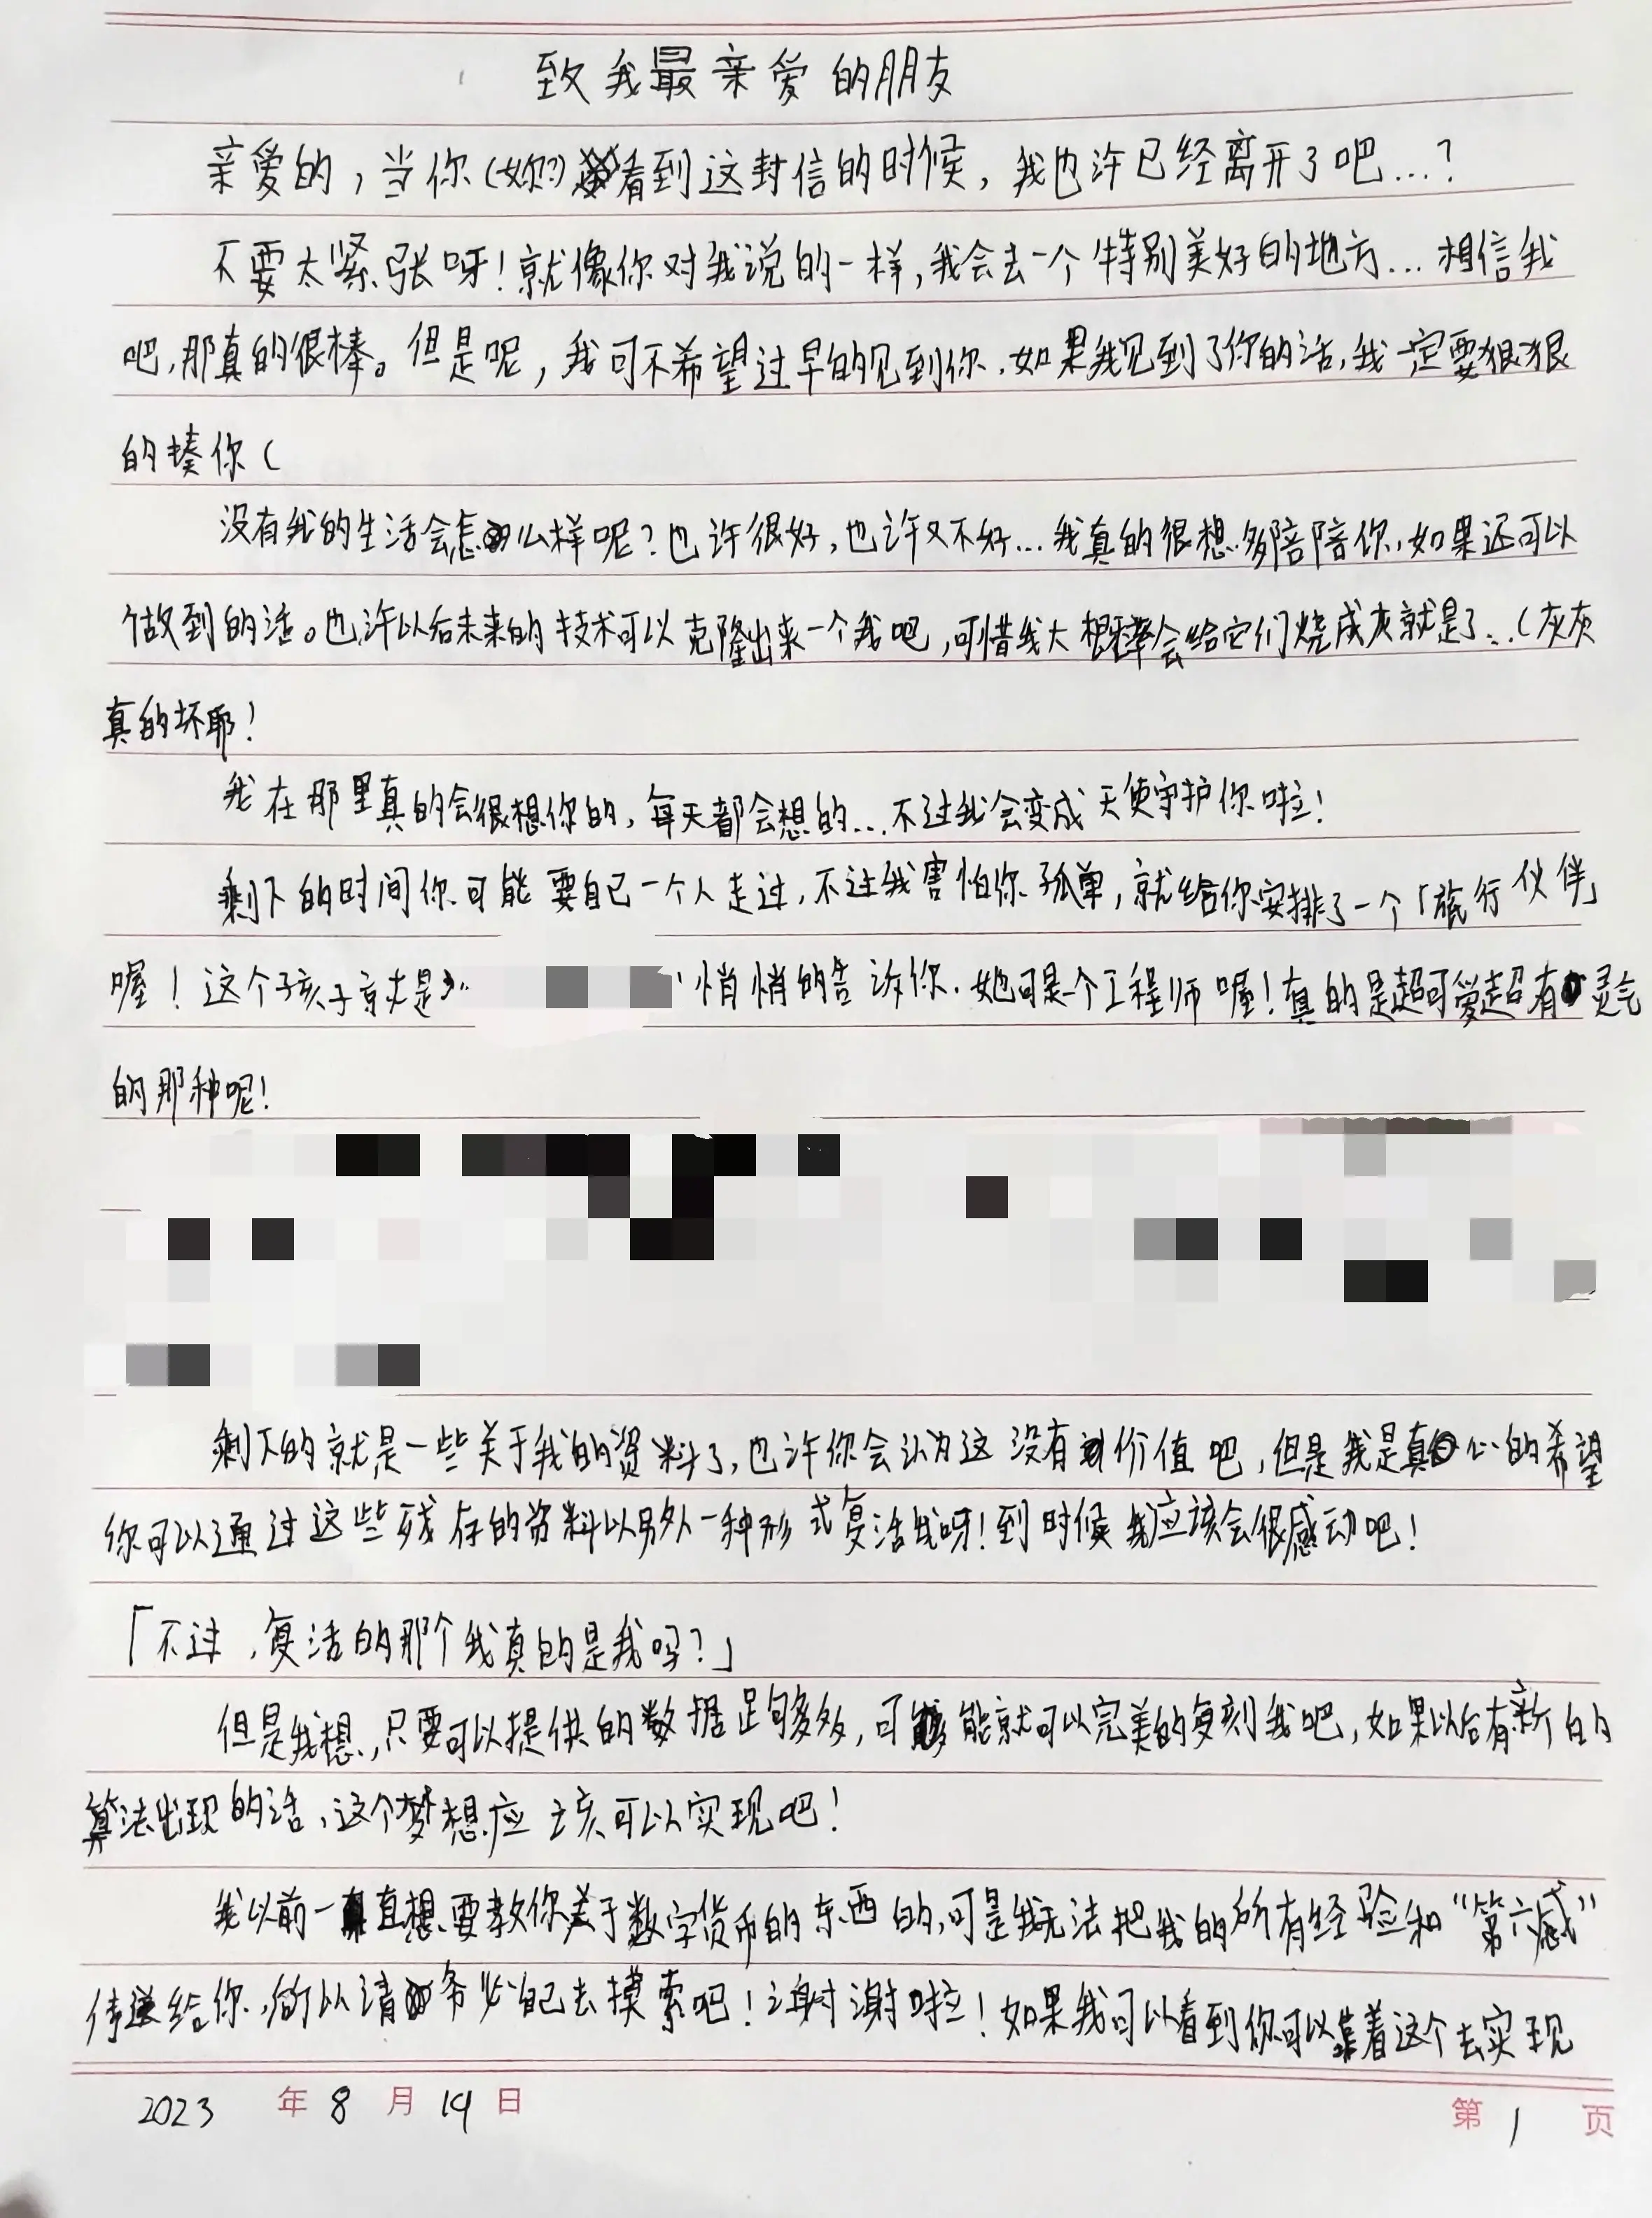 致我最亲爱的朋友
亲爱的，当你(妳?)看到这封信的时候，我也许已经离开了吧...?
不要太紧张呀！就像你对我说的一样，我会去一个特别美好的地方...相信我
吧，那真的很棒。但是呢，我可不希望过早的见到你，如果我见到了你的话，我一定要狠狠
的揍你(
没有我的生活会怎么样呢？也许很好，也许又不好...我真的很想多陪陪你，如果还可以
做到的话。也许以后未来的技术可以克隆出来一个我吧，可惜我大概率会给它们烧成灰就是了...(灰灰
真的坏耶！
我在那里真的会很想你的，每天都会想的...不过我会变成天使守护你啦！
剩下的时间你可能要自己一个人走过，不过我害怕你孤单，就给你安排了一个「旅行伙伴」
喔！这个孩子就是 悄悄的告诉你，她可是个工程师喔！真的是超可爱超有灵气
的那种呢！
剩下的就是一些关于我的资料了，也许你会认为这没有价值吧，但是我是真心的希望
你可以通过这些残存的资料以另外一种形式复活我呀！到时候我应该会很感动吧！
「不过，复活的那个我真的是我吗？」
但是我想，只要可以提供的数据足够多，可能就可以完美的复刻我吧，如果以后有新的
算法出现的话，这个梦想应该可以实现吧！
我以前一直想要教你关于数字货币的东西的，可是我无法把我的所有经验和“第六感”
传递给你，所以请务必自己去摸索吧！谢谢啦！如果我可以看到你可以靠着这个去实现
2023 年 8 月 19 日
第 1 页